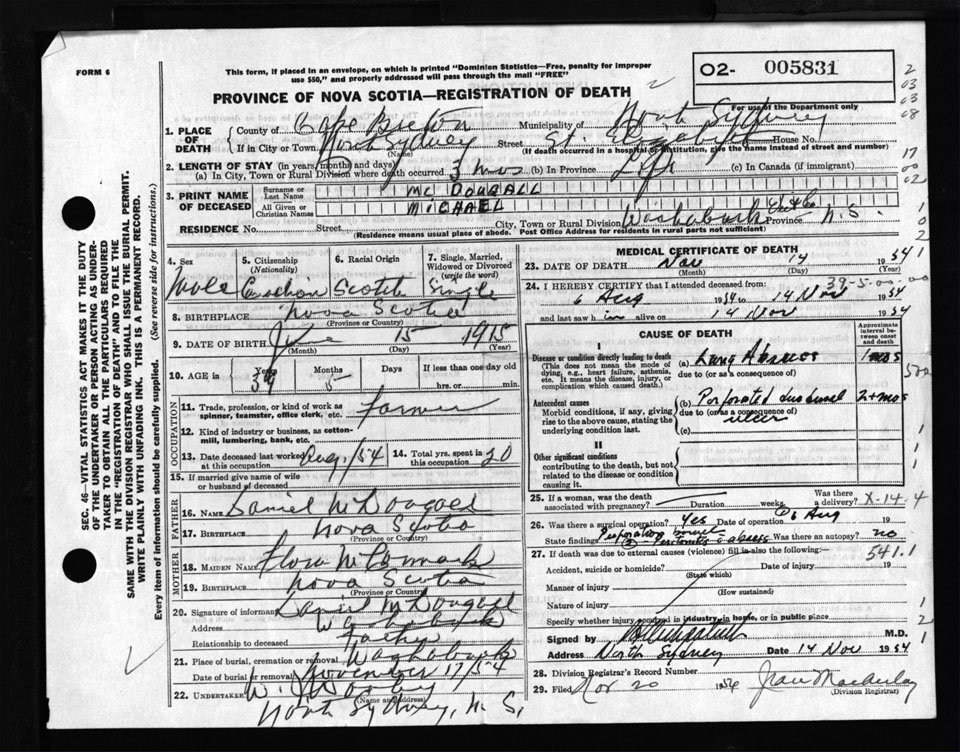 FORM 6
This form, if placed in an envelope, on which is printed "Dominion Statistics—Free, penalty for improper
use $50," and properly addressed will pass through the mail "FREE"
PROVINCE OF NOVA SCOTIA—REGISTRATION OF DEATH
02- 005831
For use of the Department only
1. PLACE OF DEATH
County of Cape Breton Municipality of North Sydney
If in City or Town North Sydney Street St. House No.
(Name) (If death occurred in a hospital or institution, give the name instead of street and number)
2. LENGTH OF STAY (in years, months and days)
(a) In City, Town or Rural Division where death occurred 3 mos (b) In Province Life (c) In Canada (if immigrant)
3. PRINT NAME OF DECEASED
Surname or Last Name MCDOUGALL
All Given or Christian Names MICHAEL
RESIDENCE No. Street City, Town or Rural Division Washabuck Province N.S.
(Residence means usual place of abode. Post Office Address for residents in rural parts not sufficient)
SEC. 46—VITAL STATISTICS ACT MAKES IT THE DUTY
OF THE UNDERTAKER OR PERSON ACTING AS UNDERTAKER
TO OBTAIN ALL THE PARTICULARS REQUIRED
IN THE "REGISTRATION OF DEATH" AND TO FILE THE
SAME WITH THE DIVISION REGISTRAR WHO SHALL ISSUE THE BURIAL PERMIT.
WRITE PLAINLY WITH UNFADING INK. THIS IS A PERMANENT RECORD.
Every item of information should be carefully supplied. (See reverse side for instructions.)
4. Sex Male
5. Citizenship (Nationality)
6. Racial Origin Scotch
7. Single, Married, Widowed or Divorced (write the word) Single
8. BIRTHPLACE Nova Scotia
(Province or Country)
9. DATE OF BIRTH June 15 1915
(Month) (Day) (Year)
10. AGE in Years 39 Months 5 Days If less than one day old hrs. or min.
OCCUPATION
11. Trade, profession, or kind of work as spinner, teamster, office clerk, etc. Farmer
12. Kind of industry or business, as cotton-mill, lumbering, bank, etc.
13. Date deceased last worked at this occupation Aug/54
14. Total yrs. spent in this occupation 20
15. If married give name of wife or husband of deceased
FATHER
16. NAME Daniel McDougall
17. BIRTHPLACE Nova Scotia
(Province or Country)
MOTHER
18. MAIDEN NAME Flora McCormack
19. BIRTHPLACE Nova Scotia
(Province or Country)
20. Signature of informant Daniel McDougall
Address Washabuck
Relationship to deceased Father
21. Place of burial, cremation or removal Washabuck
Date of burial or removal November 17/54
22. UNDERTAKER
(Name and address)
North Sydney, N.S.
MEDICAL CERTIFICATE OF DEATH
23. DATE OF DEATH Nov 14 1954
(Month) (Day)
39-5-00-00
24. I HEREBY CERTIFY that I attended deceased from:
6 Aug 1954 to 14 Nov 1954
and last saw him alive on 14 Nov 1954
CAUSE OF DEATH
Approximate interval between onset and death
I
Disease or condition directly leading to death
(This does not mean the mode of dying, e.g., heart failure, asthenia, etc. It means the disease, injury, or complication which caused death.)
(a) Lung Abscess 1 mos
due to (or as a consequence of)
Antecedent causes
Morbid conditions, if any, giving rise to the above cause, stating the underlying condition last.
(b) Perforated duodenal ulcer 2+mos
due to (or as a consequence of)
(c)
II
Other significant conditions
contributing to the death, but not related to the disease or condition causing it.
25. If a woman, was the death associated with pregnancy? Duration weeks Was there a delivery? X-14.4
26. Was there a surgical operation? Yes Date of operation 6 Aug 19
State findings Was there an autopsy? no
27. If death was due to external causes (violence) fill in also the following:— 541.1
Accident, suicide or homicide? Date of injury 19
(State which)
Manner of injury
(How sustained)
Nature of injury
Specify whether injury occurred in industry, in home, or in public place
Signed by M.D.
Address North Sydney Date 14 Nov 1954
28. Division Registrar's Record Number
29. Filed Nov 20 1954 Jean Macaulay
(Division Registrar)